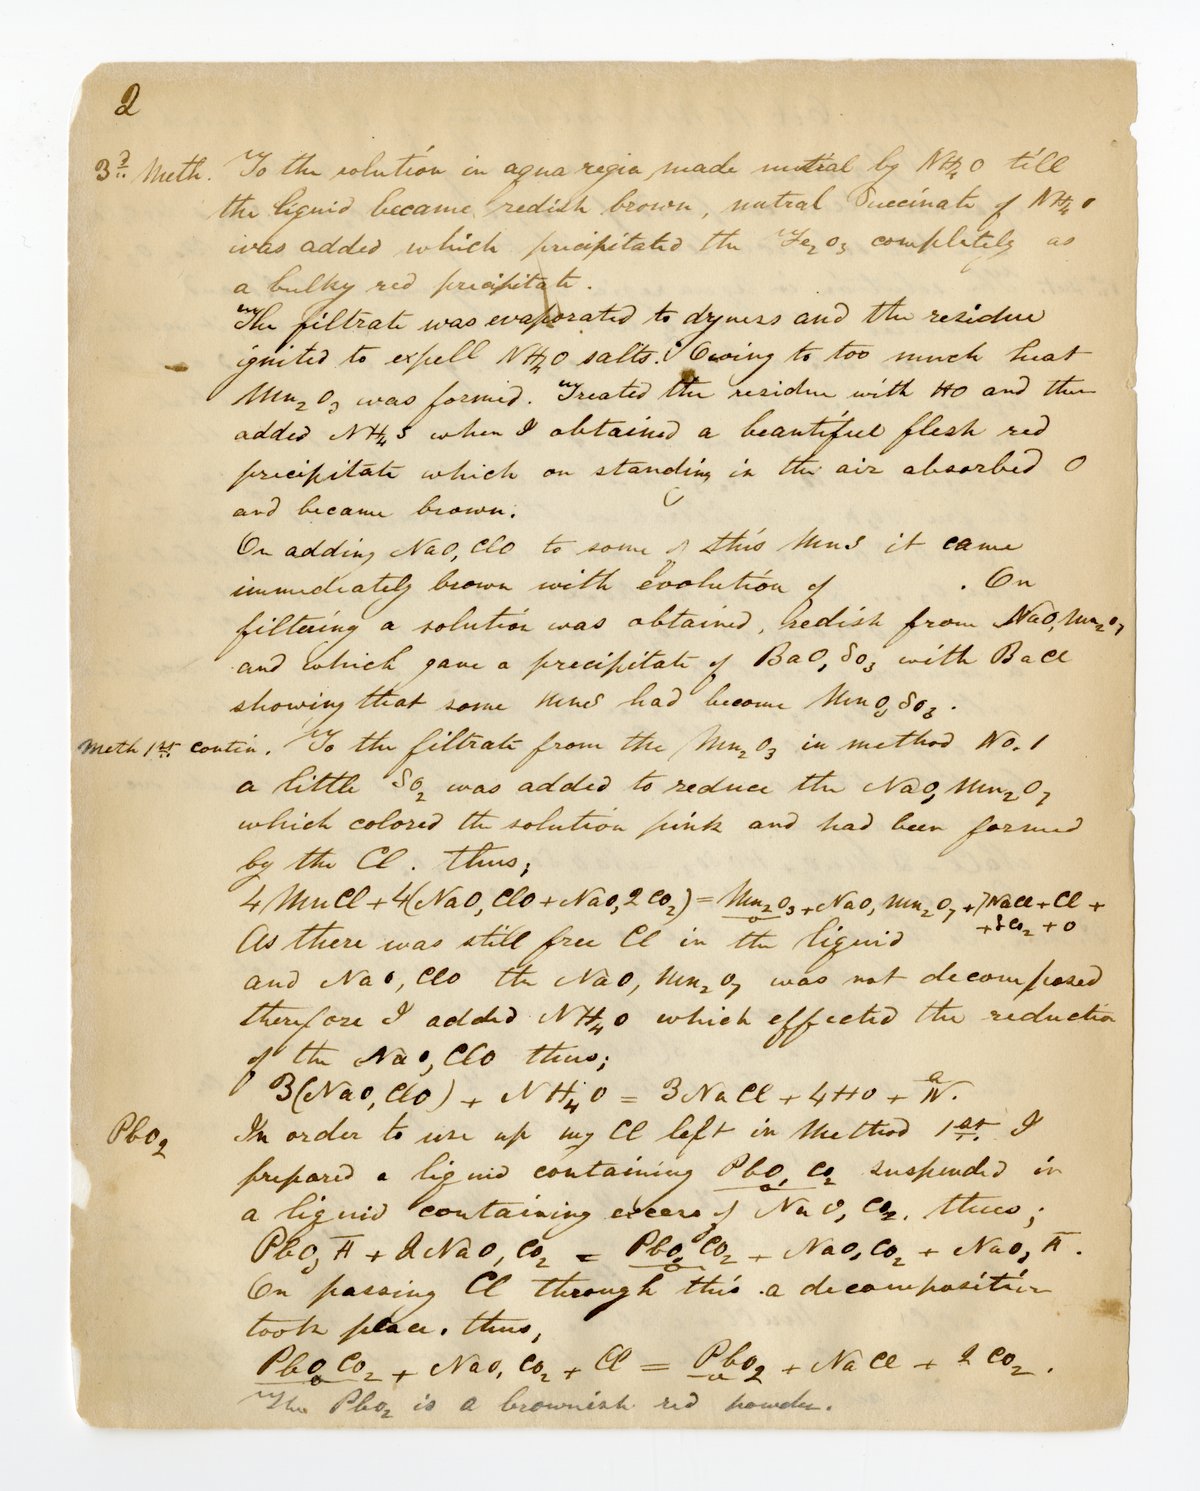 2
3d. Meth. To the solution in aqua regia made nutral by NH4O till
the liquid became redish brown, nutral Succinate of NH4O
was added which precipitated the Fe2O3 completely as
a bulky red precipitate.
The filtrate was evaporated to dyness and the residue
ignited to expell NH4O salts. Owing to too much heat
Mn2O3 was formed. Treated the residue with HO and then
added NH4S when I obtained a beautiful flesh red
precipitate which on standing in the air absorbed O
and became brown.
On adding NaO, ClO to some of this MnS it came
immediately brown with evolution of . On
filtering a solution was obtained, redish from NaO, Mn2O7
and which gave a precipitate of BaO, SO3 with BaCl
showing that some MnS had become MnO, SO3.
Meth 1st contin. To the filtrate from the Mn2O3 in method No. 1
a little SO2 was added to reduce the NaO, Mn2O7
which colored the solution pink and had been formed
by the Cl. thus;
4MnCl + 4(NaO, ClO + NaO, 2CO2) = Mn2O3 + NaO, Mn2O7 + 7NaCl + Cl +
+ 8CO2 + O
As there was still free Cl in the liquid
and NaO, ClO the NaO, Mn2O7 was not decomposed
therefore I added NH4O which effected the reduction
of the NaO, ClO thus;
3(NaO, ClO) + NH4O = 3NaCl + 4HO + N.
PbO2 In order to use up my Cl left in Method 1st. I
prepared a liquid containing PbO, CO2 suspended in
a liquid containing excess of NaO, CO2. thus;
PbO, A̅ + 2NaO, CO2 = PbO, CO2 + NaO, CO2 + NaO, A̅.
On passing Cl through this a decomposition
took place. thus,
PbO, CO2 + NaO, CO2 + Cl = PbO2 + NaCl + 2CO2.
The PbO2 is a brownish red powder.